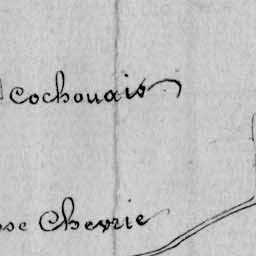 Cochouais
ose Chevrie